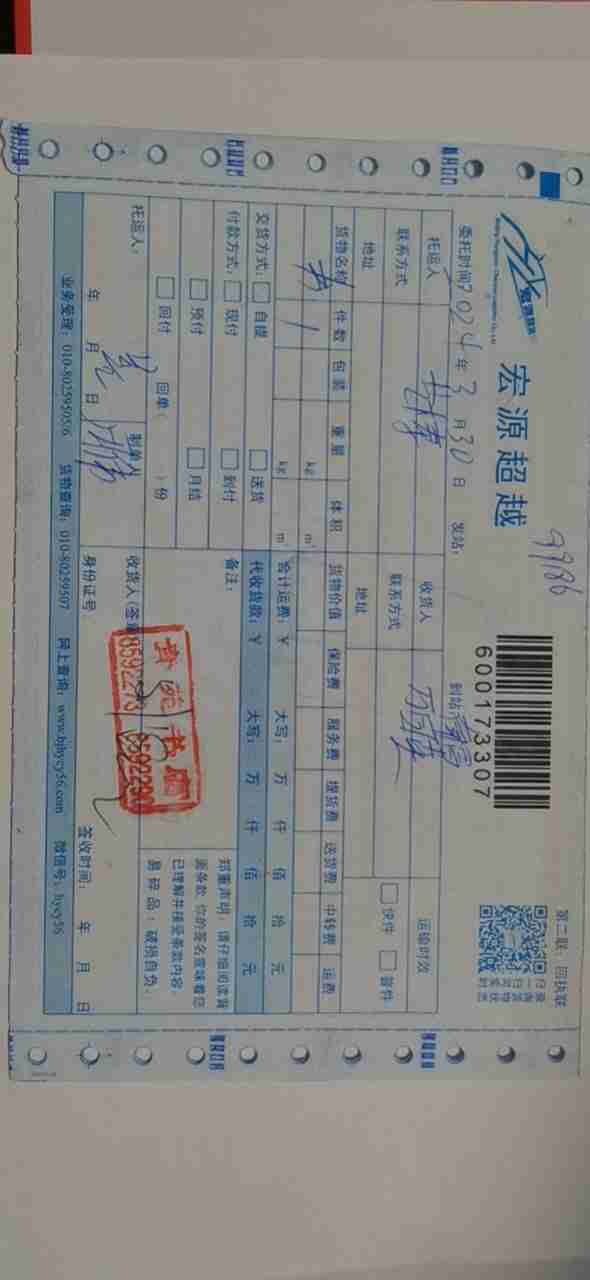 宏源超越
600173307
99186
第二联：回执联
委托时间2024年3月30日 发站： 到站
托运人 收货人 运输时效
联系方式 联系方式 快件 普件
地址 地址
货物名称 件数 包装 重量 体积 货物价值 保险费 服务费 提货费 送货费 中转费 运费
书 1 kg m³
kg m³
交货方式： 自提 送货 合计运费：¥ 大写： 万 仟 佰 拾 元
付款方式： 现付 到付 代收货款：¥ 大写： 万 仟 佰 拾 元
预付 月结 备注：
回付 回单( )份
郑重声明：请仔细阅读背
面条款，你的签名意味着您
已理解并接受条款内容。
易碎品：破损自负。
托运人： 制单人 收货人(签
年 月 日 身份证号 签收时间： 年 月 日
业务受理：010-80259505/6 货物查询：010-80259507 网上查询：www.bjhycy56.com 微信号：hycy56